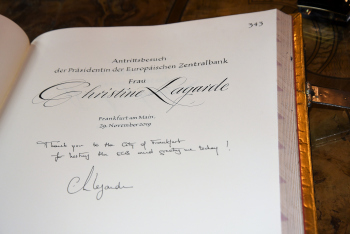 343
Antrittsbesuch
der Präsidentin der Europäischen Zentralbank
Frau
Christine Lagarde
Frankfurt am Main,
29. November 2019
Thank you to the City of Frankfurt
for hosting the ECB and greeting me today!
CLagarde